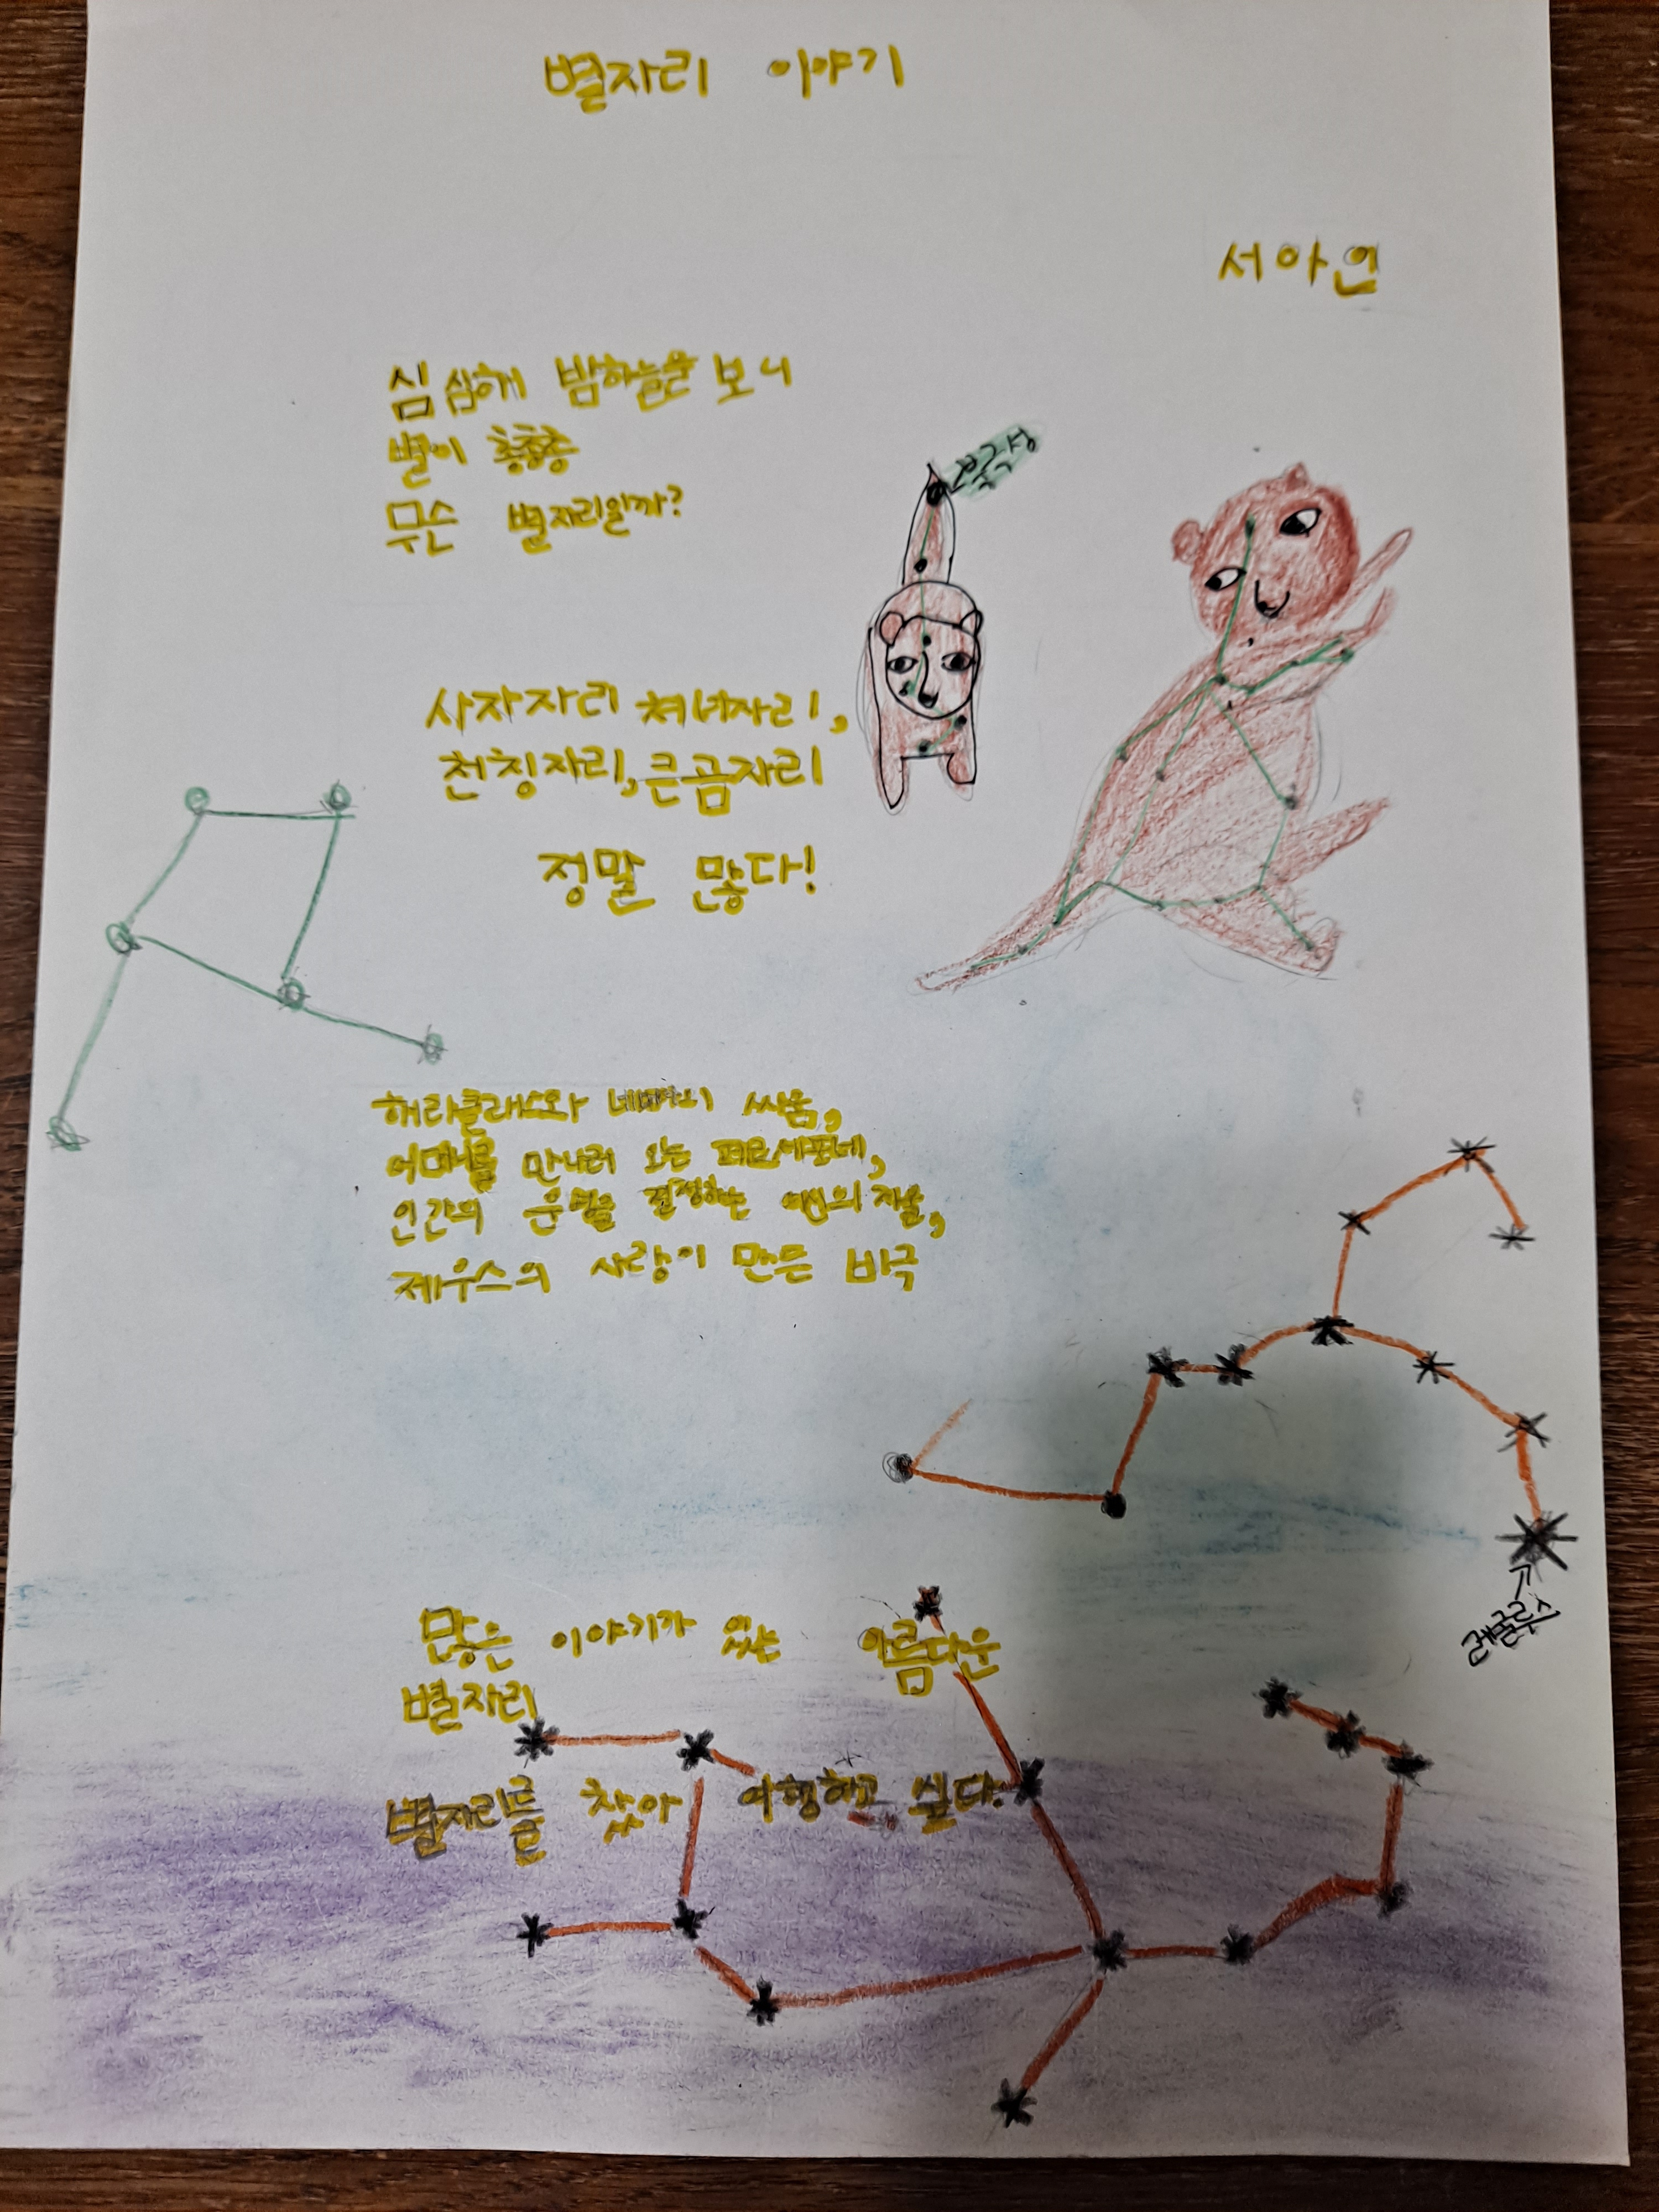 별자리 이야기
서아인
심심해 밤하늘을 보니
별이 총총총
무슨 별자리일까?
북극성
사자자리 처녀자리,
천칭자리, 큰곰자리
정말 많다!
해라클래스와 네메아의 싸움,
어머니를 만나러 오는 페르세포네,
인간의 운명을 결정하는 여신의 저울,
제우스의 사랑이 만든 비극
레굴루스
많은 이야기가 있는 아름다운
별자리
별자리를 찾아 여행하고 싶다.